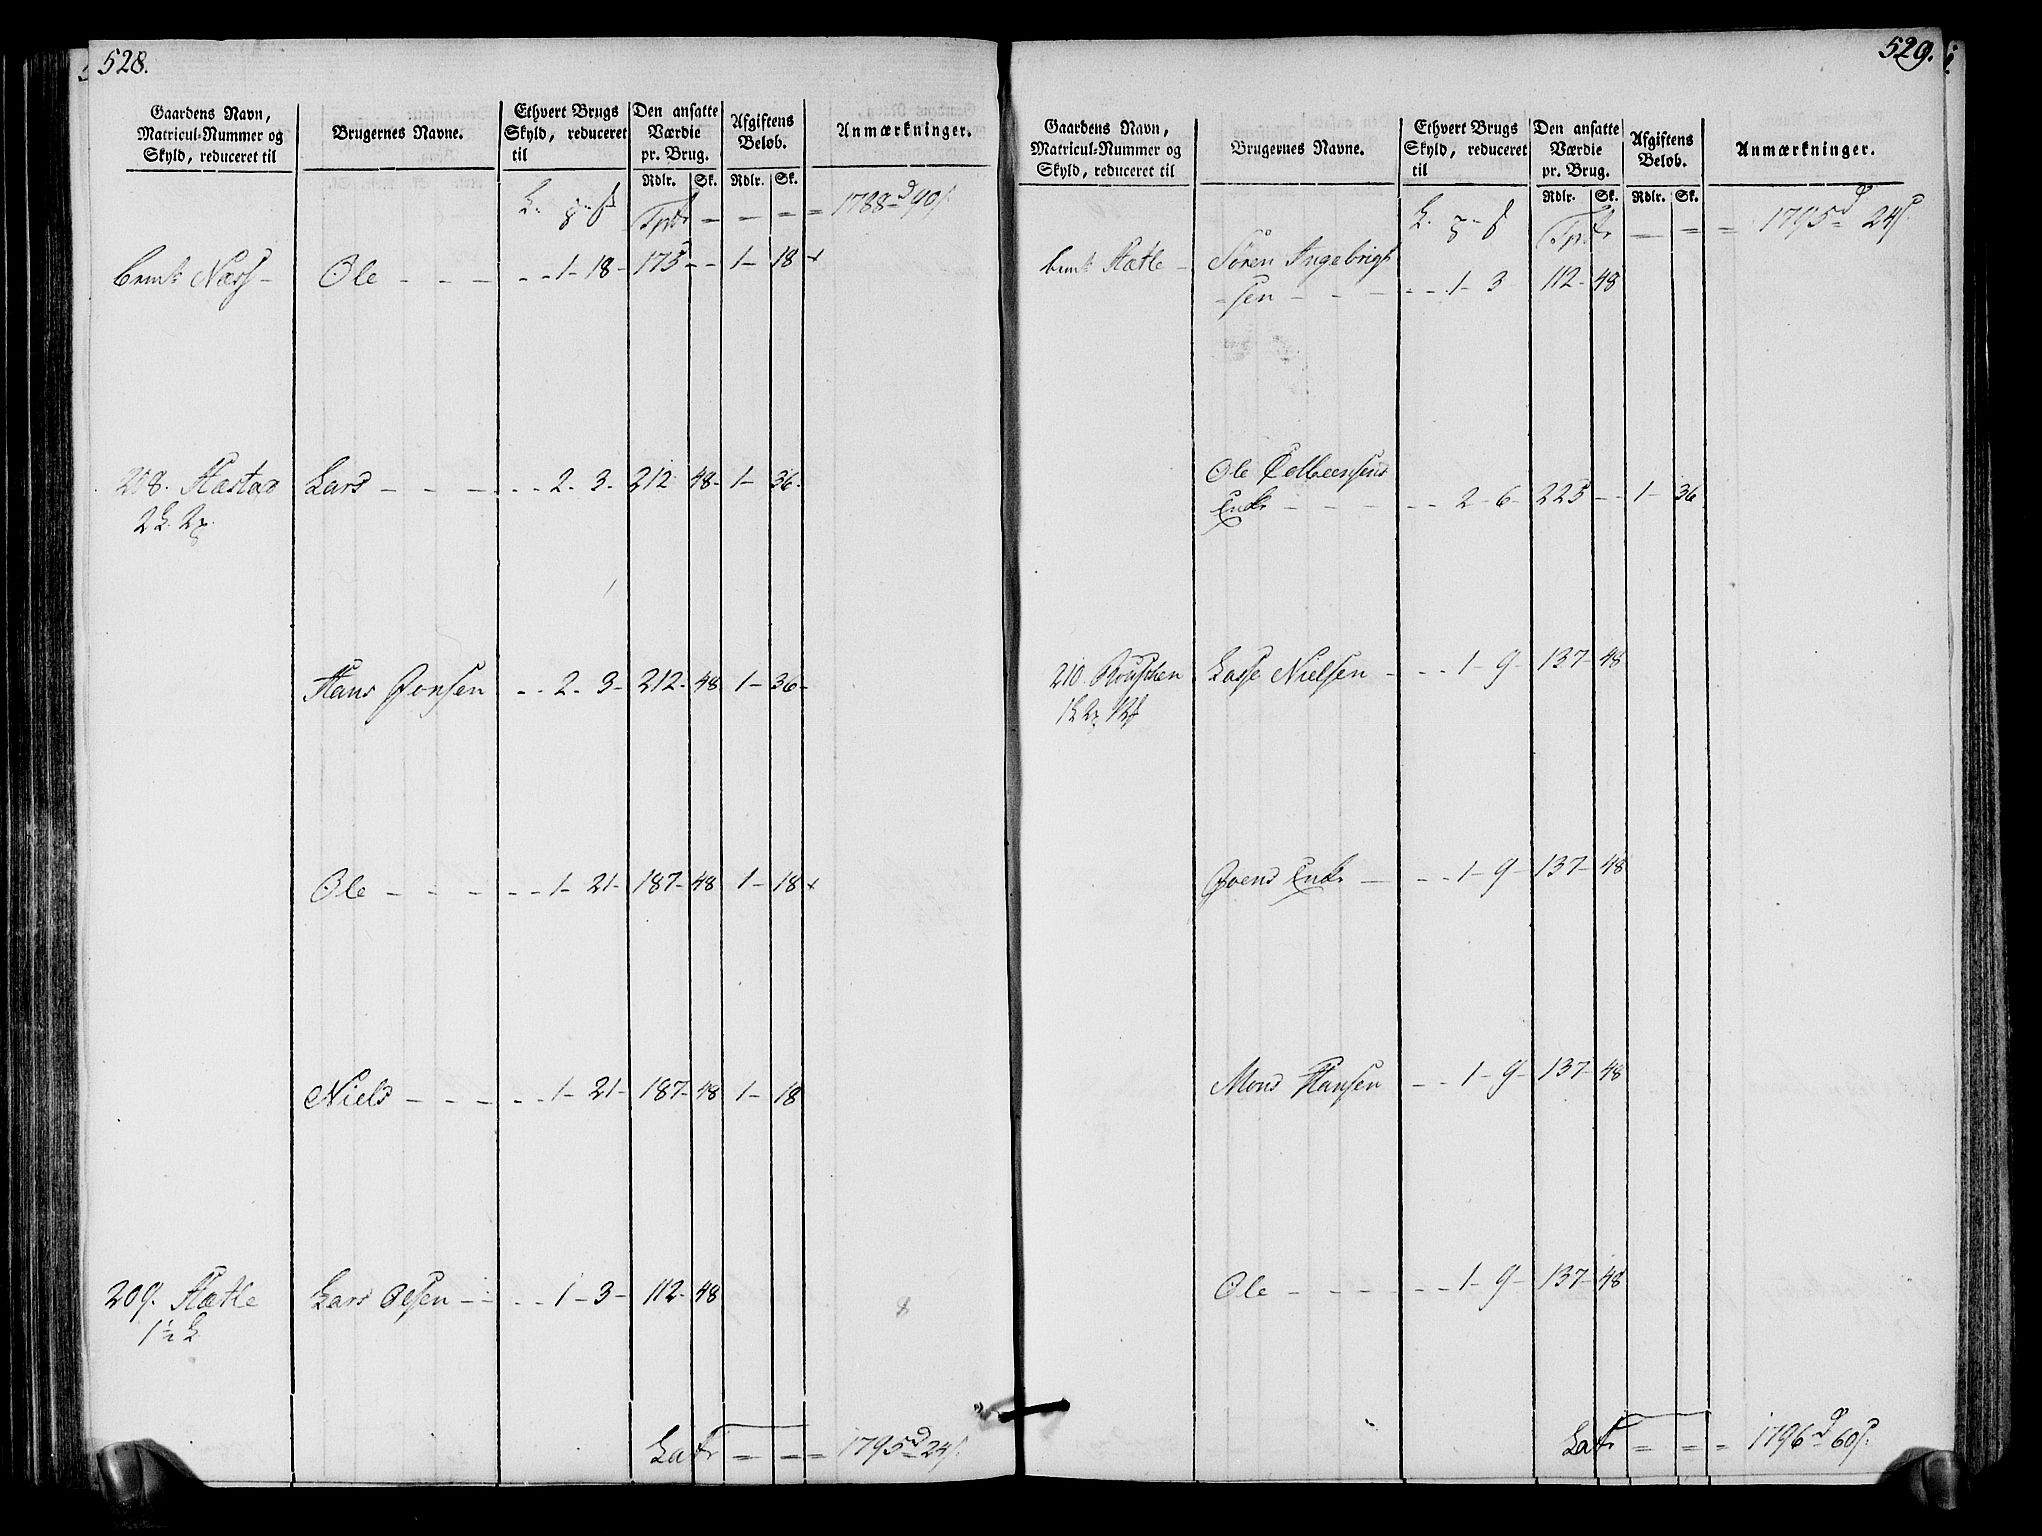 528.
Gaardens Navn, Matricul-Nummer og Skyld, reduceret til
Brugernes Navne.
Ethvert Brugs Skyld, reduceret til
Den ansatte Værdie pr. Brug.
Afgiftens Beløb.
Anmærkninger.
Rdlr. Sk. Rdlr. Sk.
Tpt - - - = 1788 d 90 s.
Ole - - - - - 1 - 18 - 175 - - 1 - 18 +
208. Hæstad Lars - - - - - 2 - 3 - 212 48 - 1 - 36 -
2 L. 2
Hans Jonsen - - 2 - 3 - 212 - 48 1 - 36 -
Ole - - - - - 1 - 21 - 187 - 48 1 - 18 +
Niels - - - - - 1 - 21 - 187 - 48 1 - 18
209. Hætle Lars Olsen - - - 1 - 3 - 112 - 48
1½ L
Latr = = = 1795 d 24 s.
529.
Gaardens Navn, Matricul-Nummer og Skyld, reduceret til
Brugernes Navne.
Ethvert Brugs Skyld, reduceret til
Den ansatte Værdie pr. Brug.
Afgiftens Beløb.
Anmærkninger.
Rdlr. Sk. Rdlr. Sk.
Tpt - = = 1795 d 24 s.
Hætle - Søren Ingebrigt
- sen - - - - - 1 - 3 112 - 48
Ole
Enke - - - - - 2 - 6 - 225 - - 1 - 36
210. Lasse Nielsen - - - 1 - 9 - 137 - 48
Joens Enke - - - 1 - 9 - 137 - 48
Mons Hansen - - 1 - 9 - 137 - 48
Ole - - - - - 1 - 9 - 137 - 48
Latr = = = 1796 d 60 s.